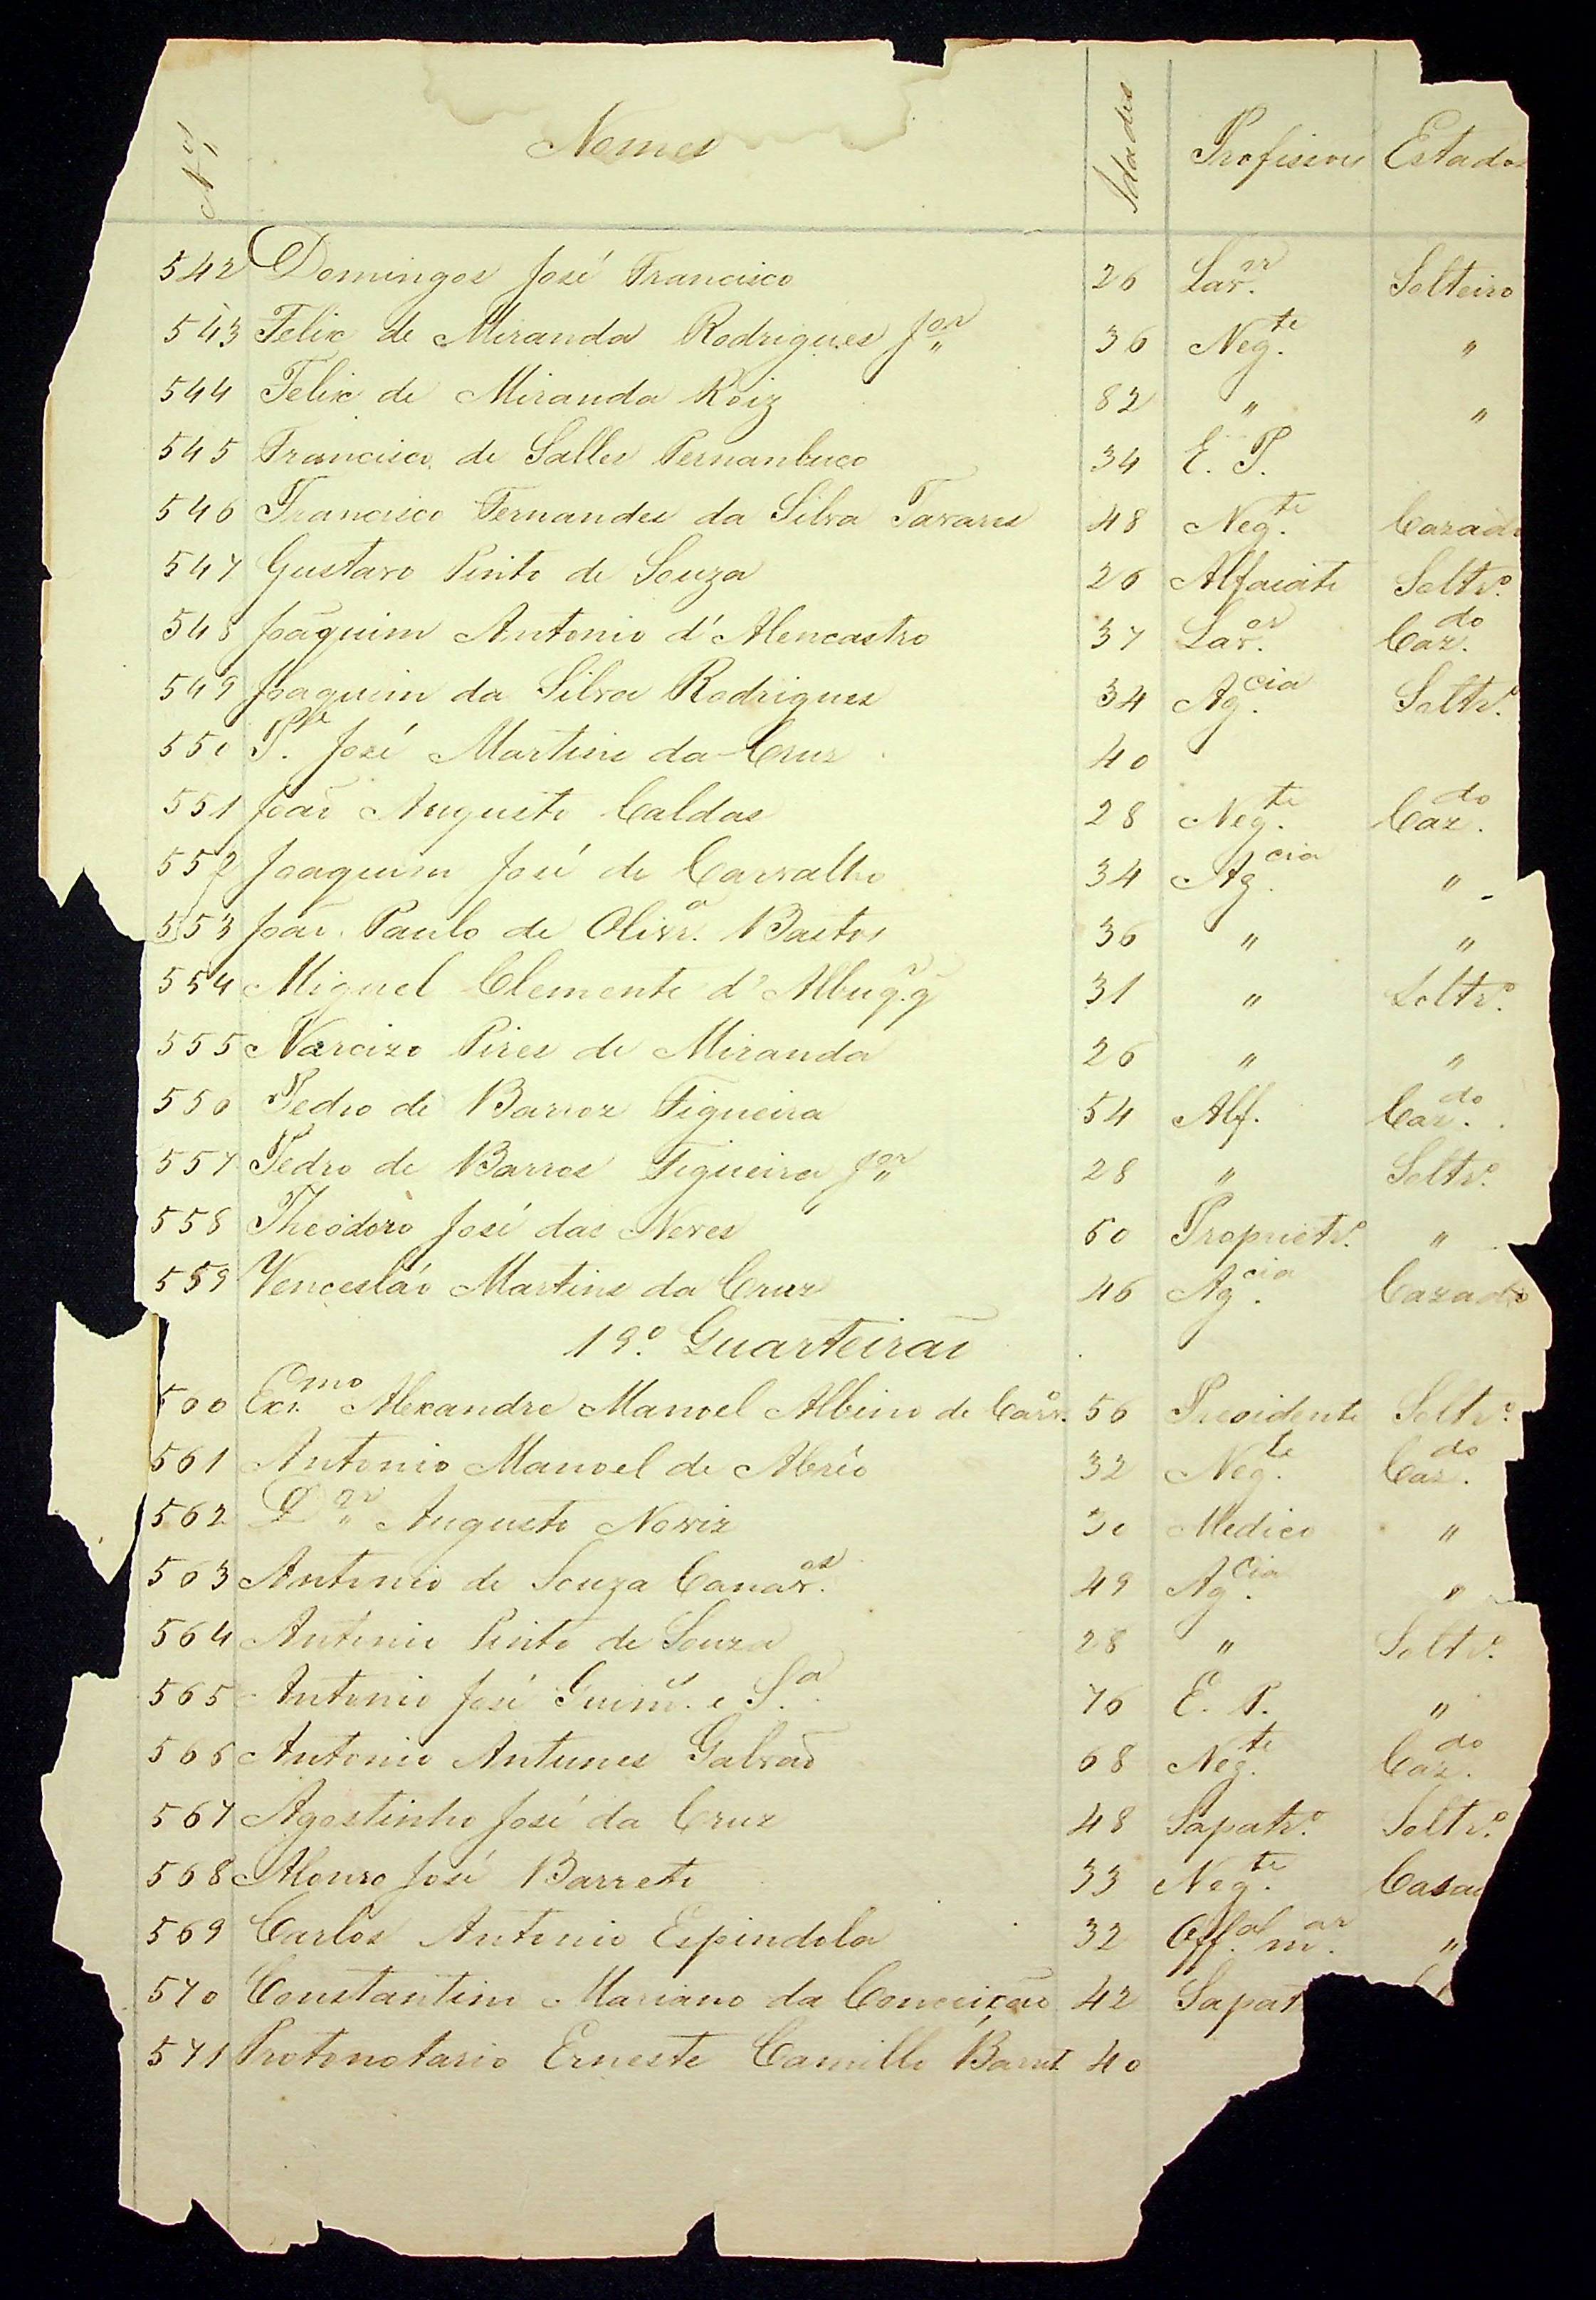 Nos Nomes Idades Profissões Estados
542 Domingos José Francisco 26 Lav.or Solteiro
543 Felix de Miranda Rodrigues Jor 36 Neg.te "
544 Felix de Miranda Roiz 82 " "
545 Francisco de Salles Pernanbuco 34 E. P.
546 Francisco Fernandes da Silva Tavares 48 Neg.te Cazado
547 Gustavo Pinto de Souza 26 Alfaiate Soltr.o
548 Joaquim Antonio d'Alencastro 37 Lav.or Caz.do
549 Joaquim da Silva Rodrigues 34 Ag.cia Soltr.o
550 P.e José Martins da Cruz 40
551 João Augusto Caldas 28 Neg.te Caz.do
552 Joaquim José de Carvalho 34 Ag.cia "
553 João Paulo de Olivr.a Bastos 36 " "
554 Miguel Clemente d'Albuq.q 31 " Soltr.o
555 Narcizo Pires de Miranda 26 " "
556 Pedro de Barros Figueira 54 Alf. Caz.do
557 Pedro de Barros Figueira Jor 28 " Soltr.o
558 Theodoro José das Neves 60 Proprietr.o "
559 Venceslão Martins da Cruz 46 Ag.cia Cazado
19.o Quarteirão
560 Exmo Alexandre Manoel Albino de Carv.o 56 Presidente Soltr.o
561 Antonio Manoel de Abrêo 32 Neg.te Caz.do
562 Dor Augusto Noviz 30 Medico "
563 Antonio de Souza Canav.os 49 Ag.cia "
564 Antonio Pinto de Souza 28 " Soltr.o
565 Antonio José Guim.s e S.a 76 E. P. "
566 Antonio Antunes Galvão 68 Neg.te Caz.do
567 Agostinho José da Cruz 48 Sapatr.o Soltr.o
568 Alonso José Barreto 33 Neg.te Casad
569 Carlos Antonio Espindola 32 Off.al m.or "
570 Constantino Mariano da Conceição 42 Sapat
571 Protonotario Ernesto Camillo Barret 40